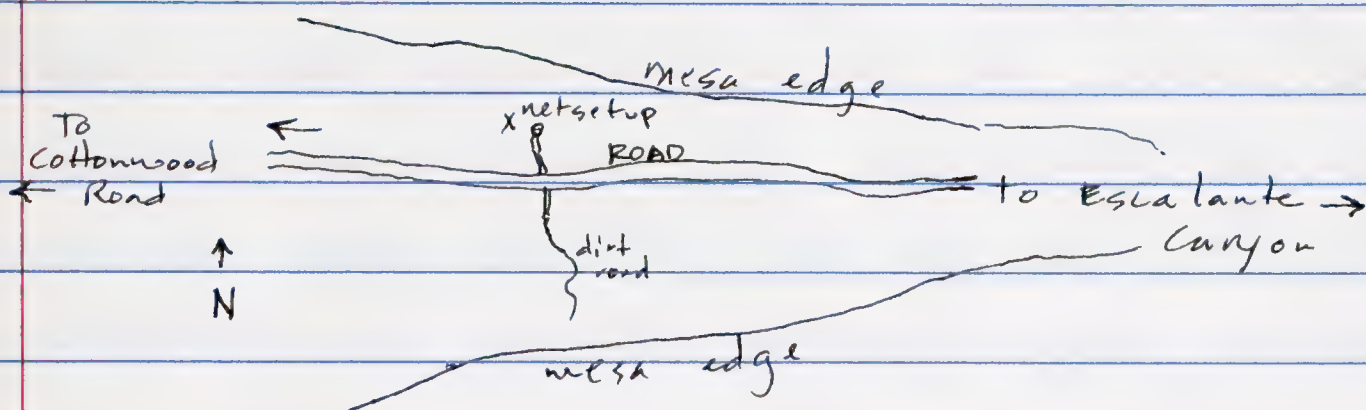 mesa edge
To
Cottonwood
Road
x netsetup
ROAD
To Escalante
Canyon
dirt
road
N
mesa edge